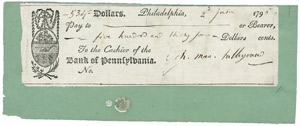 534 Dollars. Philadelphia, 2d June 179
Pay to or Bearer,
five hundred and thirty four Dollars cents.
To the Cashier of the
Bank of Pennsylvania.
No.